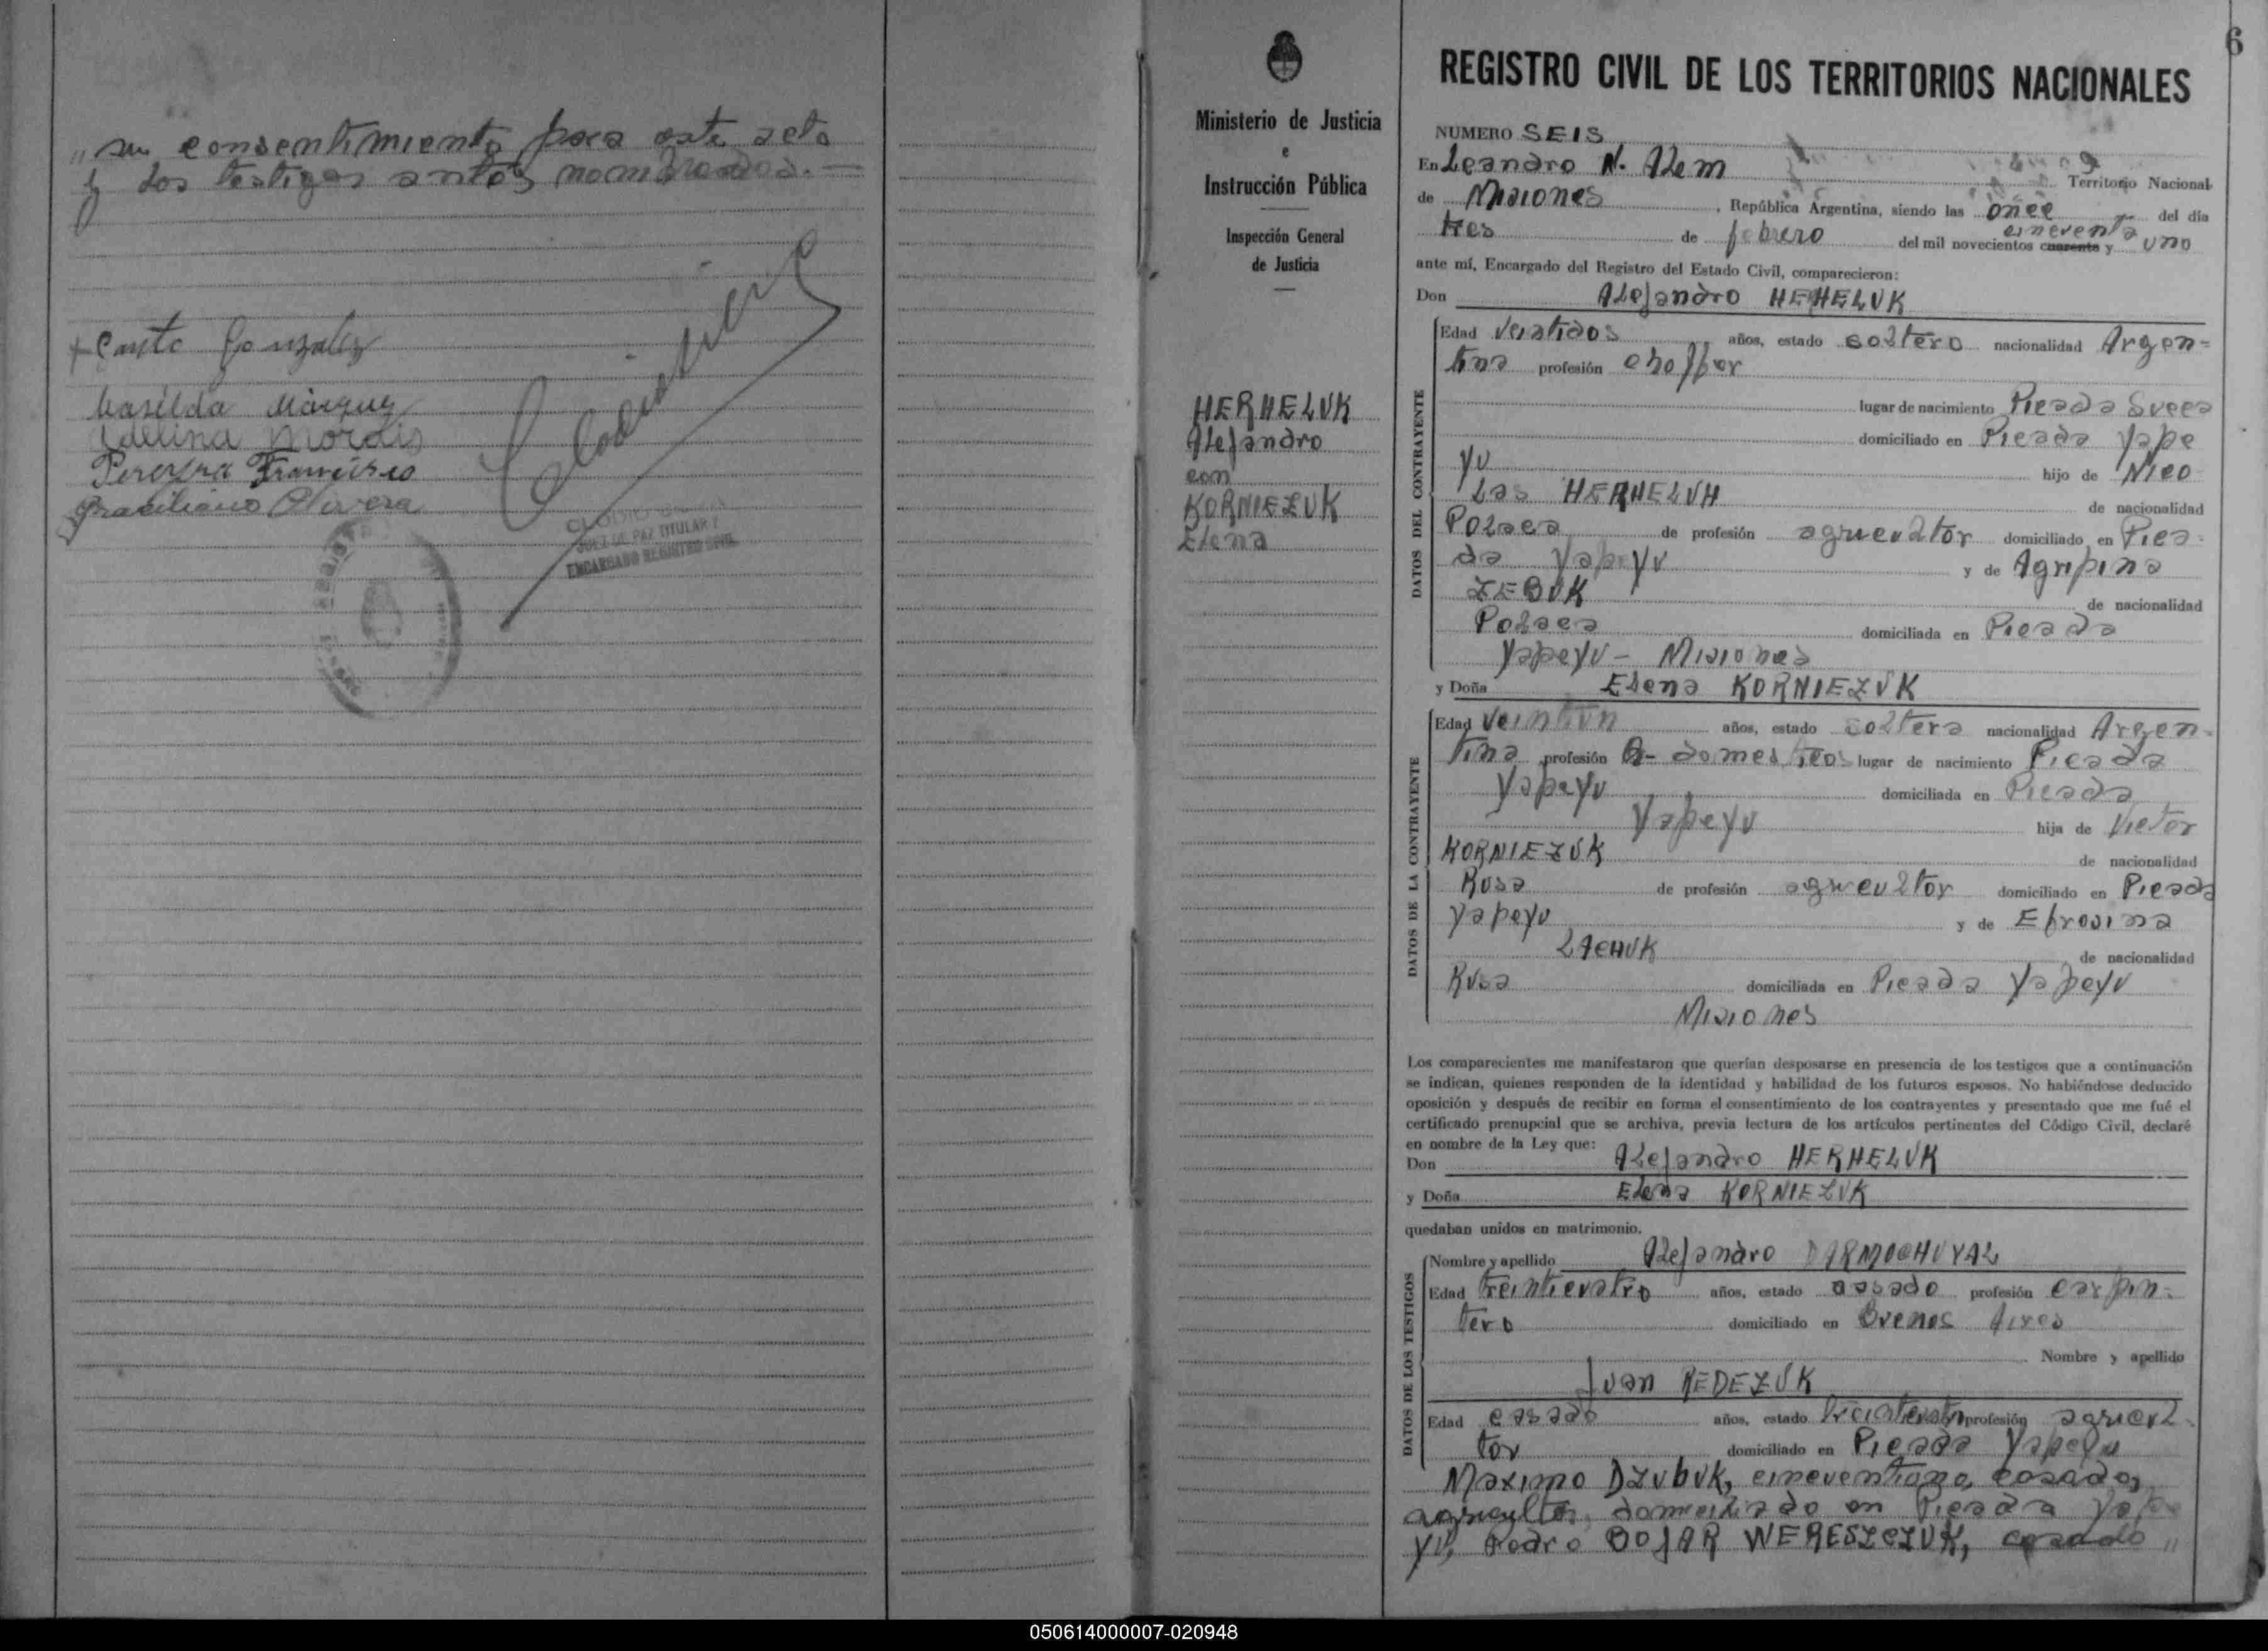 „ su consentimiento para este acto
y los testigos antes nombrados.—
Gonzalez
Casilda Márquez
Adelina Morais
Pereyra Francisco
Brasiliano Olivera
JUEZ DE PAZ TITULAR
ENCARGADO REGISTRO CIVIL
Ministerio de Justicia
e
Instrucción Pública
Inspección General
de Justicia
HERHELUK
Alejandro
con
KORNIEZUK
Elena
6
REGISTRO CIVIL DE LOS TERRITORIOS NACIONALES
NUMERO SEIS
En Leandro N. Alem Territorio Nacional
de Misiones, República Argentina, siendo las once del día
tres de febrero del mil novecientos cuarenta y cincuenta y uno
ante mí, Encargado del Registro del Estado Civil, comparecieron:
Don Alejandro HEHELUK
DATOS DEL CONTRAYENTE
Edad veintidos años, estado soltero nacionalidad Argen=
tina profesión choffer
lugar de nacimiento Picada Sueca
domiciliado en Picada Yape
yu hijo de Nico
las HERHELUH de nacionalidad
Polaca de profesión agricultor domiciliado en Pica-
da Yapeyu y de Agripina
ZEBUK de nacionalidad
Polaca domiciliada en Picada
Yapeyu - Misiones
y Doña Elena KORNIEZUK
DATOS DE LA CONTRAYENTE
Edad veintiun años, estado soltera nacionalidad Argen-
tina profesión Q- domesticos lugar de nacimiento Picada
Yapeyu domiciliada en Picada
Yapeyu hija de Victor
KORNIEZUK de nacionalidad
Rusa de profesión agricultor domiciliado en Picada
Yapeyu y de Efrosina
LACHUK de nacionalidad
Rusa domiciliada en Picada Yapeyu
Misiones
Los comparecientes me manifestaron que querían desposarse en presencia de los testigos que a continuación
se indican, quienes responden de la identidad y habilidad de los futuros esposos. No habiéndose deducido
oposición y después de recibir en forma el consentimiento de los contrayentes y presentado que me fué el
certificado prenupcial que se archiva, previa lectura de los artículos pertinentes del Código Civil, declaré
en nombre de la Ley que:
Don Alejandro HERHELUK
y Doña Elena KORNIEZUK
quedaban unidos en matrimonio.
DATOS DE LOS TESTIGOS
Nombre y apellido Alejandro DARMOCHUYAL
Edad treinticuatro años, estado casado profesión carpin-
tero domiciliado en Buenos Aires
Nombre y apellido
Juan REDEZUK
Edad casado años, estado treinticuatro profesión agricul-
tor domiciliado en Picada Yapeyu
Maximo DZUbUK, cincuentiuno, casado,
agricultor, domiciliado en Picada Yape
yu, Pedro BOJAR WERESZCZUK, casado „
050614000007-020948